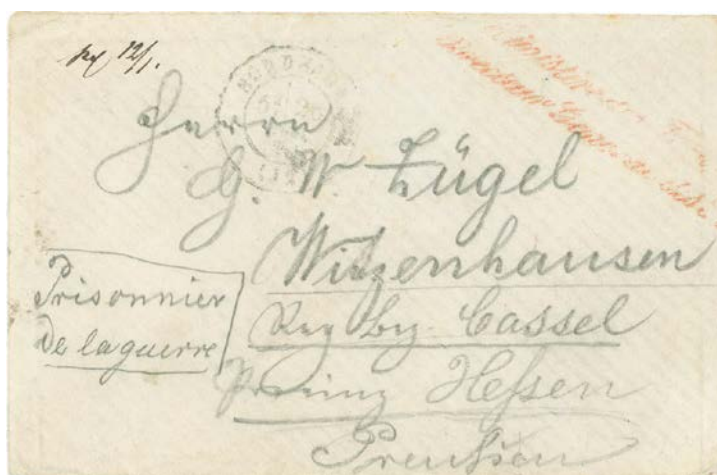 12/1.
Herrn
G. W Zügel
Witzenhausen
Reg bz. Cassel
Provinz Hessen
Preußen
Prisonnier
De la guerre